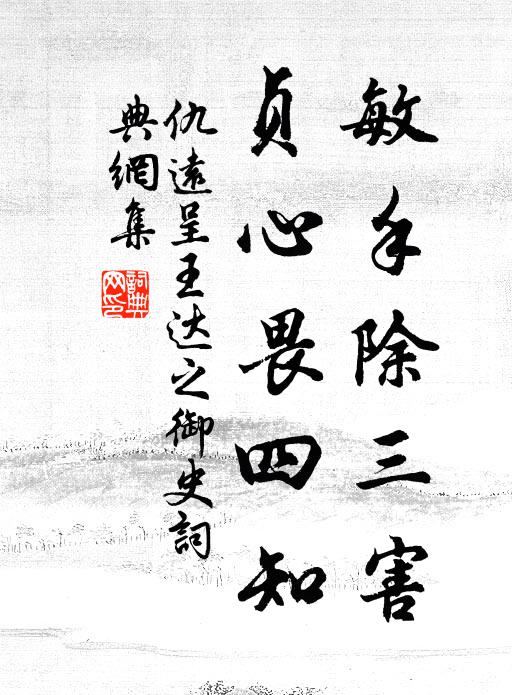 敏手除三害
貞心畏四知
仇遠呈王达之御史詞
典網集
詞典
网印